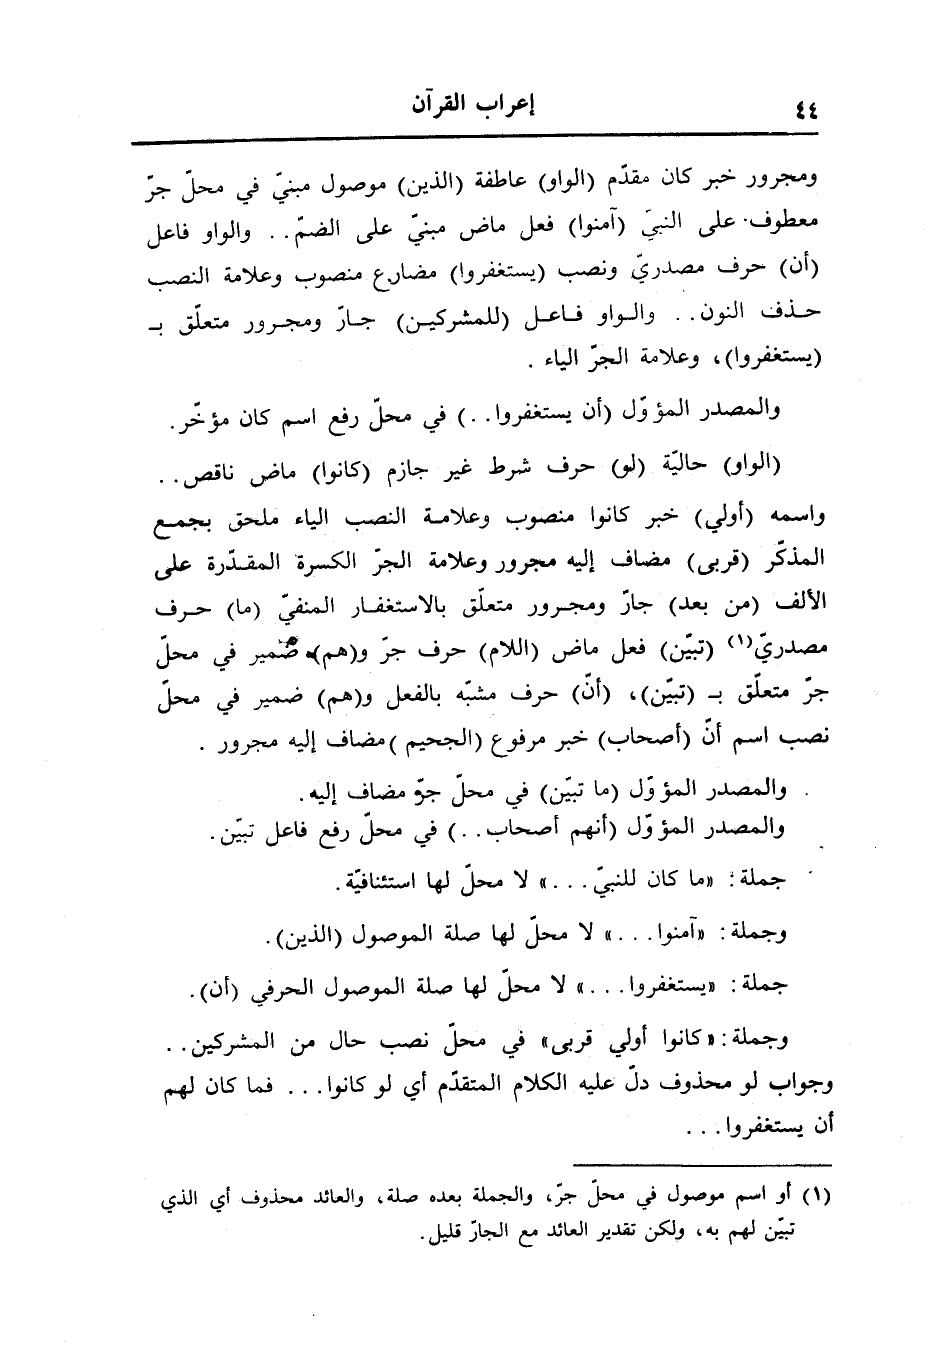 ٤٤
إعراب القرآن
ومجرور خبر كان مقدّم (الواو) عاطفة (الذين) موصول مبنيّ في محلّ جرّ
معطوف على النبيّ (آمنوا) فعل ماض مبنيّ على الضمّ.. والواو فاعل
(أن) حرف مصدريّ ونصب (يستغفروا) مضارع منصوب وعلامة النصب
حذف النون.. والواو فاعل (للمشركين) جارّ ومجرور متعلّق بـ
(يستغفروا)، وعلامة الجرّ الياء .
والمصدر المؤوّل (أن يستغفروا..) في محلّ رفع اسم كان مؤخّر.
(الواو) حاليّة (لو) حرف شرط غير جازم (كانوا) ماض ناقص..
واسمه (أولي) خبر كانوا منصوب وعلامة النصب الياء ملحق بجمع
المذكّر (قربى) مضاف إليه مجرور وعلامة الجرّ الكسرة المقدّرة على
الألف (من بعد) جارّ ومجرور متعلّق بالاستغفار المنفيّ (ما) حرف
مصدريّ(١) (تبيّن) فعل ماض (اللام) حرف جرّ و(هم) ضمير في محلّ
جرّ متعلّق بـ (تبيّن)، (أنّ) حرف مشبّه بالفعل و(هم) ضمير في محلّ
نصب اسم أنّ (أصحاب) خبر مرفوع (الجحيم) مضاف إليه مجرور .
والمصدر المؤوّل (ما تبيّن) في محلّ جرّ مضاف إليه.
والمصدر المؤوّل (أنهم أصحاب..) في محلّ رفع فاعل تبيّن.
جملة: «ما كان للنبيّ...» لا محلّ لها استئنافيّة.
وجملة: «آمنوا...» لا محلّ لها صلة الموصول (الذين).
جملة: «يستغفروا...» لا محلّ لها صلة الموصول الحرفي (أن).
وجملة: «كانوا أولي قربى» في محلّ نصب حال من المشركين..
وجواب لو محذوف دلّ عليه الكلام المتقدّم أي لو كانوا... فما كان لهم
أن يستغفروا...
(١) أو اسم موصول في محلّ جرّ، والجملة بعده صلة، والعائد محذوف أي الذي
تبيّن لهم به، ولكن تقدير العائد مع الجارّ قليل.